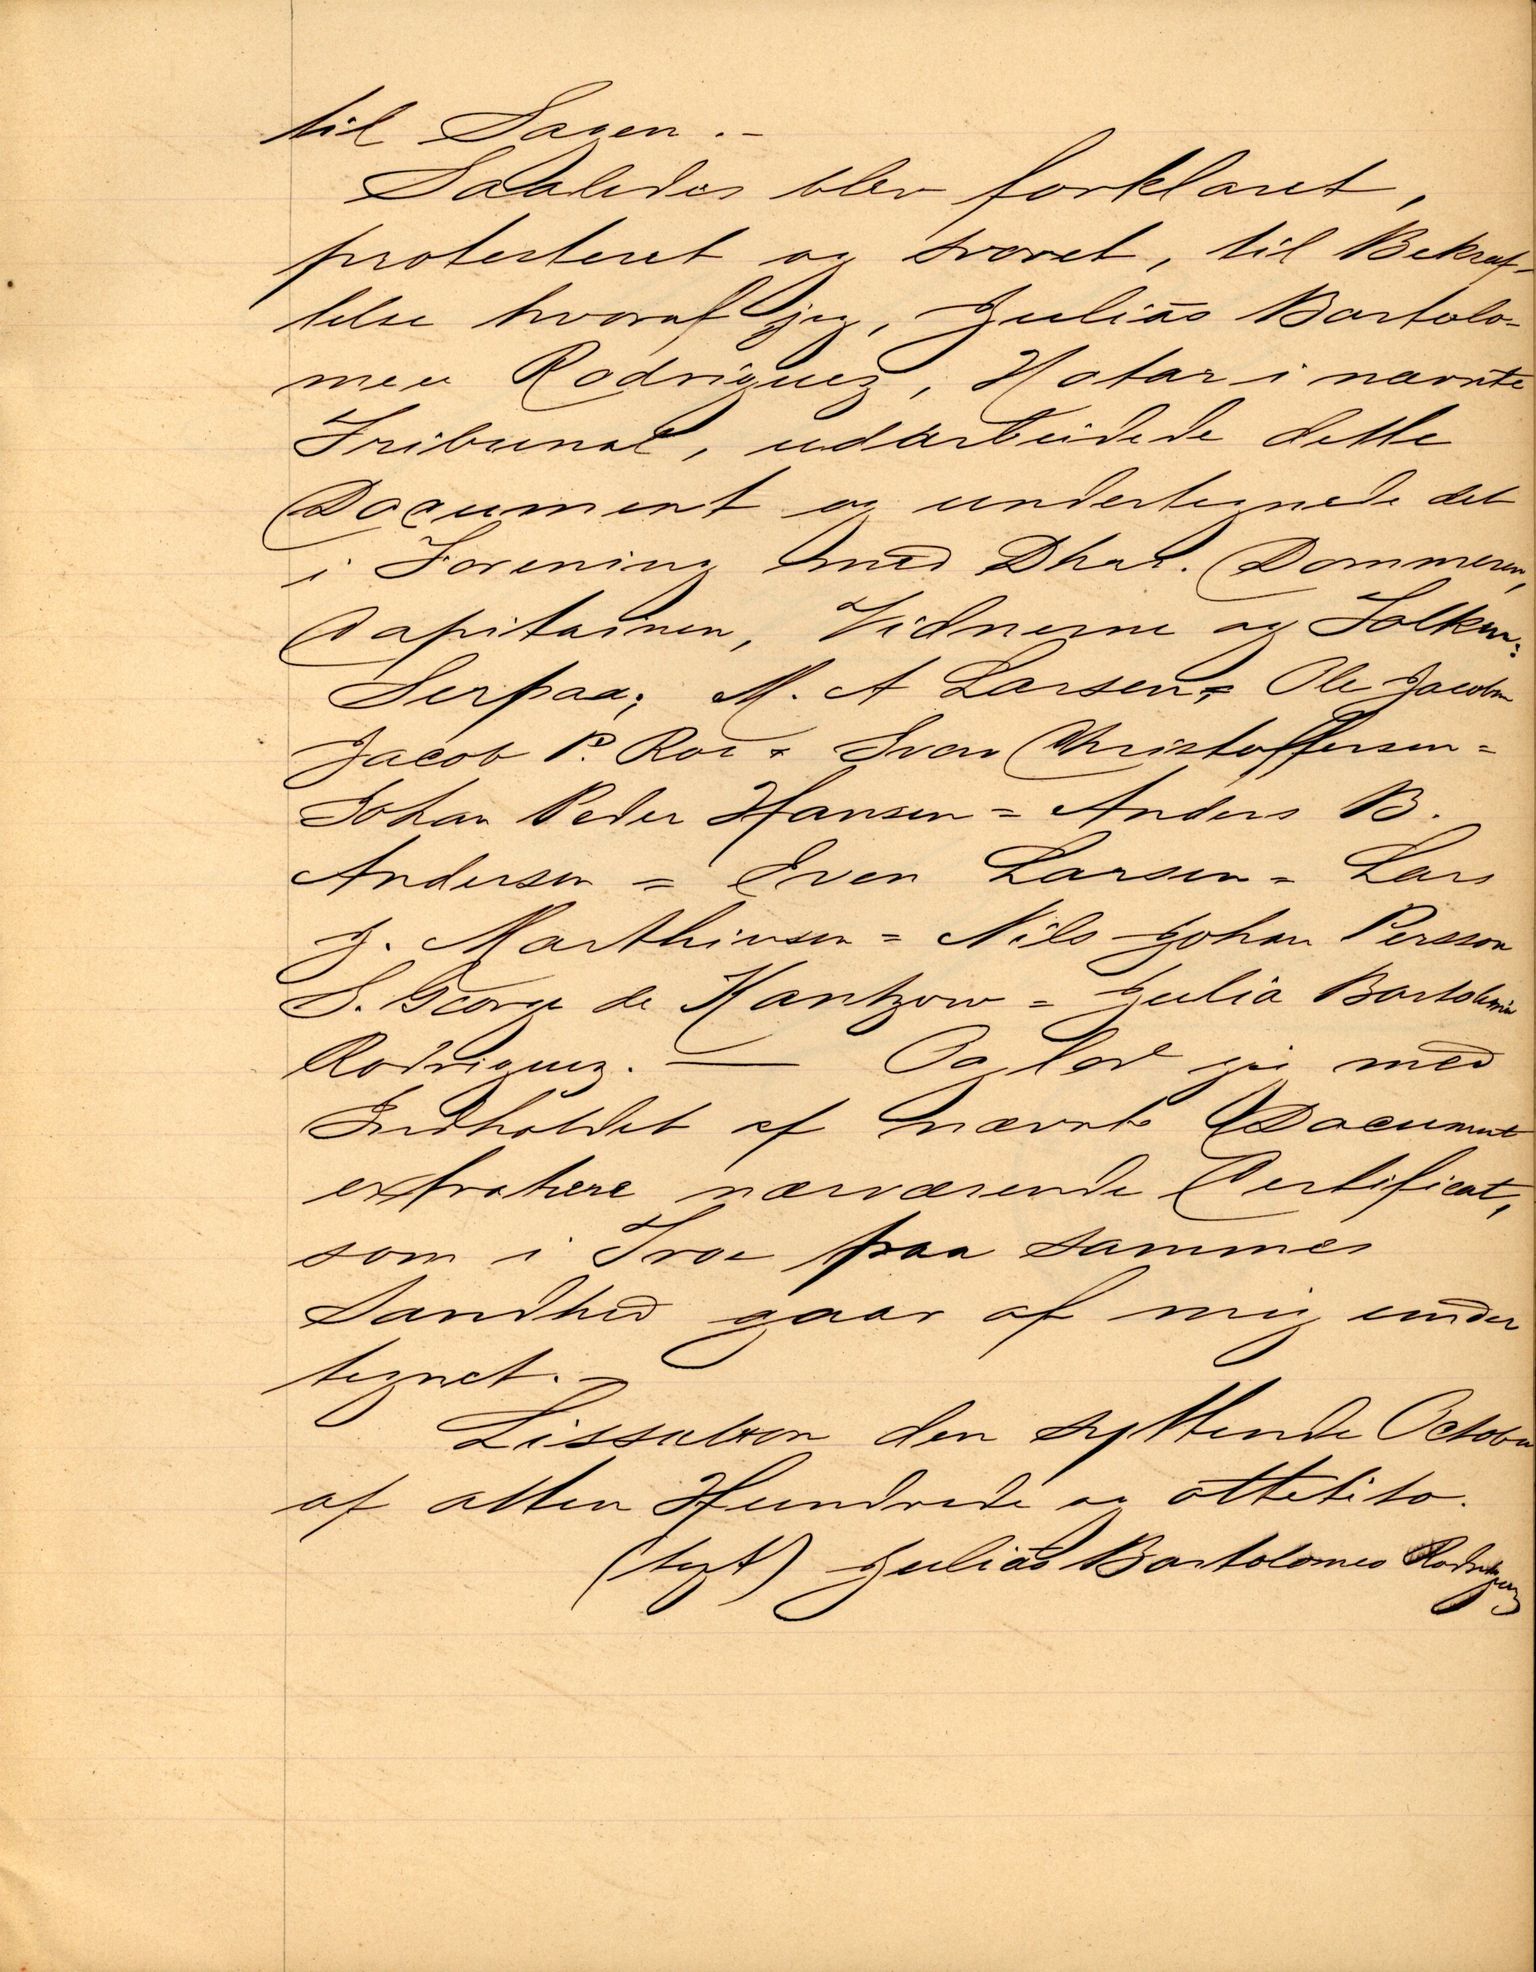 til Sagen.-
Saaledes blev forklaret,
protesteret og svoret, til Bekræf-
telse hvoraf jeg, Juliãs Bartolo-
meu Rodriguez, Notar i nævnte
Tribunal, udarbeidede dette
Document og undertegnede det
i Forening med Dhrr. Dommeren,
Capitainen, Vidnerne og Tolken:
Serpaa; M. A Larsen = Ole Jacobsen
Jacob P. Roe = Sven Christoffersen =
Johan Peder Hansen = Anders B.
Andersen = Even Larsen = Lars
J. Marthinsen = Nils Johan Persson
S. George de Kantzow = Juliã Bartolomeu
Rodriguez. — Og lod jeg med
Indholdet af nævnte Document
extrahere nærværende Certificat,
som i Troe paa sammes
Sandhed gaar af mig under
tegnet.-
Lissabon den syttende October
af atten Hundrede og ottetito.
(tegt) Juliãs Bartolomeo Rodriguez